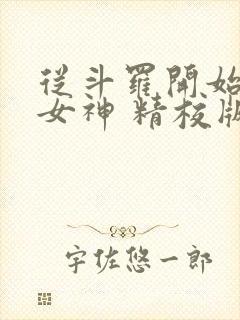 從斗羅開始
女神 精校版
宇佐悠一郎